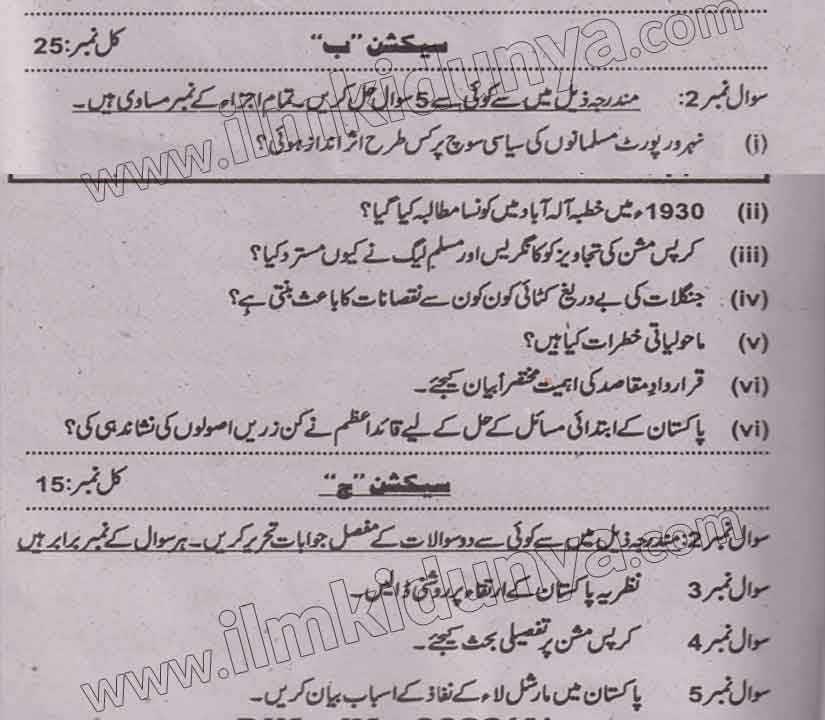 سیکشن "ب" کل نمبر: 25
سوال نمبر 2: مندرجہ ذیل میں سے کوئی سے 5 سوال حل کریں۔ تمام اجزاء کے نمبر مساوی ہیں۔
(i) نہرو رپورٹ مسلمانوں کی سیاسی سوچ پر کس طرح اثر انداز ہوئی؟
(ii) 1930ء میں خطبہ آلہ آباد میں کونسا مطالبہ کیا گیا؟
(iii) کرپس مشن کی تجاویز کو کانگریس اور مسلم لیگ نے کیوں مسترد کیا؟
(iv) جنگلات کی بے دریغ کٹائی کون کون سے نقصانات کا باعث بنتی ہے؟
(v) ماحولیاتی خطرات کیا ہیں؟
(vi) قراردادِ مقاصد کی اہمیت مختصراً بیان کیجئے۔
(vi) پاکستان کے ابتدائی مسائل کے حل کے لیے قائداعظم نے کن زریں اصولوں کی نشاندہی کی؟
سیکشن "ج" کل نمبر: 15
سوال نمبر 2: مندرجہ ذیل میں سے کوئی سے دو سوالات کے مفصل جوابات تحریر کریں۔ ہر سوال کے نمبر برابر ہیں
سوال نمبر 3 نظریہ پاکستان کے ارتقاء پر روشنی ڈالیں۔
سوال نمبر 4 کرپس مشن پر تفصیلی بحث کیجئے۔
سوال نمبر 5 پاکستان میں مارشل لاء کے نفاذ کے اسباب بیان کریں۔
www.ilmkidunya.com
www.ilmkidunya.com